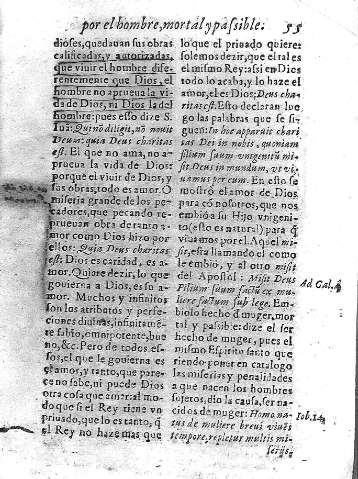 por el hombre, mortal y passible. 55
dioses, quedauan sus obras
calificadas, y autorizadas,
que viuir el hombre dife-
rentemente que Dios, el
hombre no aprueua la vi-
da de Dios, ni Dios la del
hombre: pues esso dize S.
Iuã: Quinõ diligit, nõ nouit
Deum: quia Deus charitas
est. El que no ama, no a-
prueua la vida de Dios
porque el viuir de Dios, y
sus obras, todo es amor. O
miseria grande de los pe-
cadores, que pecando re-
prueuan obra de tanto a-
mor como Dios hizo por
ellos: Quia Deus charitas
est: Dios es caridad, es a-
mor. Quiere dezir, lo que
gouierna a Dios, es su a-
mor. Muchos y infinitos
son los atributos y perfe-
ciones diuinas, infinitamẽ-
te sabio, omnipotente, bue
no, &c. Pero de todos es-
sos, el que le gouierna es
el amor, y tanto, que pare-
ce no sabe, ni puede Dios
otra cosa que amar: al mo-
do que si el Rey tiene vn
priuado, que lo es tanto, q̃
el Rey no haze mas que
lo que el priuado quiere:
solemos dezir, que el tal es
el mismo Rey: assi en Dios
todo lo acaba, y lo haze el
amor, el es Dios; Deus cha-
ritas est. Esto declaran lue-
go las palabras que se si-
guen: In hoc apparuit chari
tas Dei in nobis, quoniam
filium suum vnigenitũ mi-
sit Deus in mundum, vt vi-
uamus per eum. En esto se
mostrò el amor de Dios
para cõ nosotros, que nos
embiò a su Hijo vnigeni-
to (esto es natural) para q̃
viuamos por el. Aquel mi-
sit, està llamando el como
le embio, y al otro misit
del Apostol: Misit Deus
Filium suum factũ ex mu-
liere factum sub lege. Em-
biolo hecho de muger, mor
tal y passible: dize el ser
hecho de muger, pues el
mismo Espiritu santo que
riendo poner en catalogo
las miserias y penalidades
a que nacen los hombres
sujetos, dio la causa, ser na-
cidos de muger: Homo na-
tus de muliere breui viuẽs
tempore, repletur multis mi-
serijs.
Ad Gal. 4
Iob. 14.